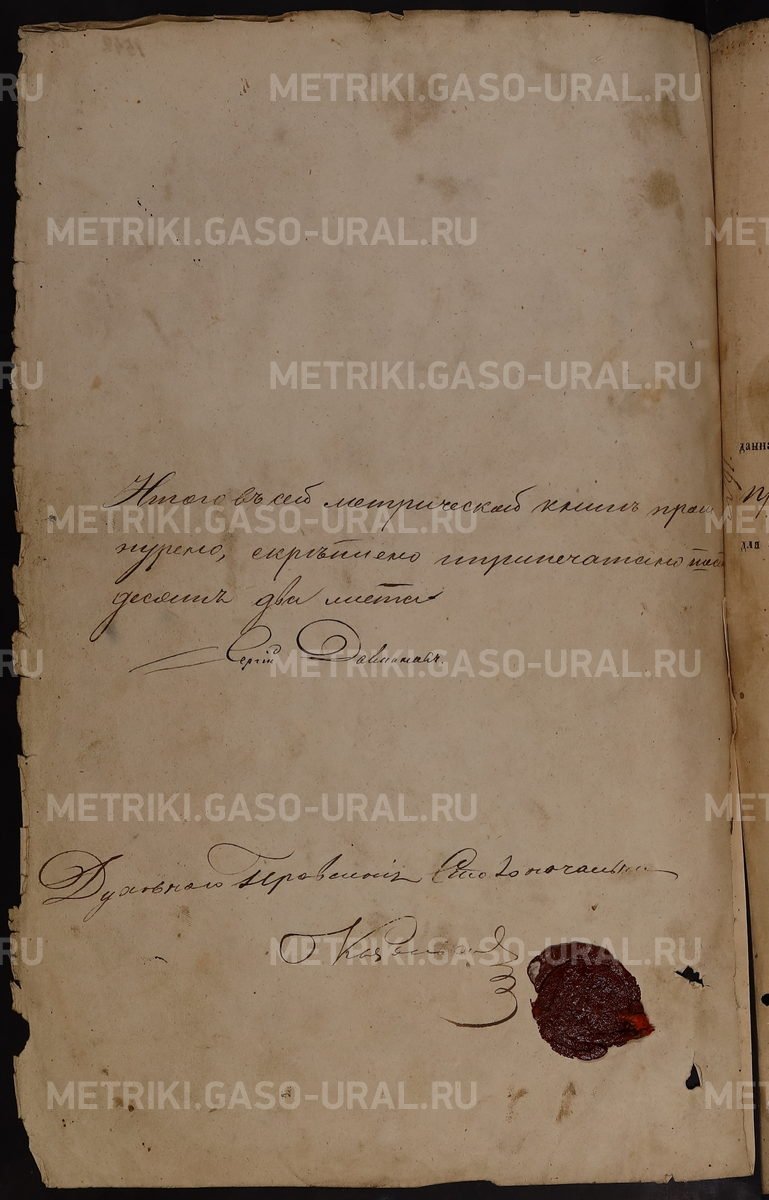 METRIKI.GASO-URAL.RU
METRIKI.GASO-URAL.RU
METRIKI.GASO-URAL.RU
Итого въ сей метрической книгѣ прош
нурено, скрѣплено и припечатано
десятъ два листа
Сергій
METRIKI.GASO-URAL.RU
METRIKI.GASO-URAL.RU
Духовнаго Правленія Столоначальникъ
METRIKI.GASO-URAL.RU
METRIKI.GASO-URAL.RU
данна
для